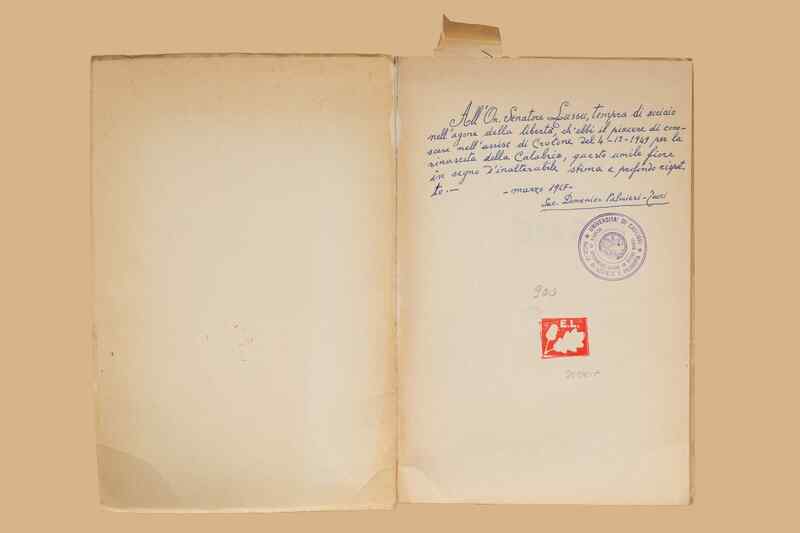 All'On. Senatore Lussu, tempra di acciaio
nell'agone della libertà, ch'ebbi il piacere di cono-
scere nell'assise di Crotone del 4-12-1949 per la
rinascita della Calabria, questo umile fiore
in segno d'inalterabile stima e profondo rispet-
to.—
- marzo
Sac. Domenico Palmieri -
UNIVERSITA' DI CAGLIARI
900
E.L.